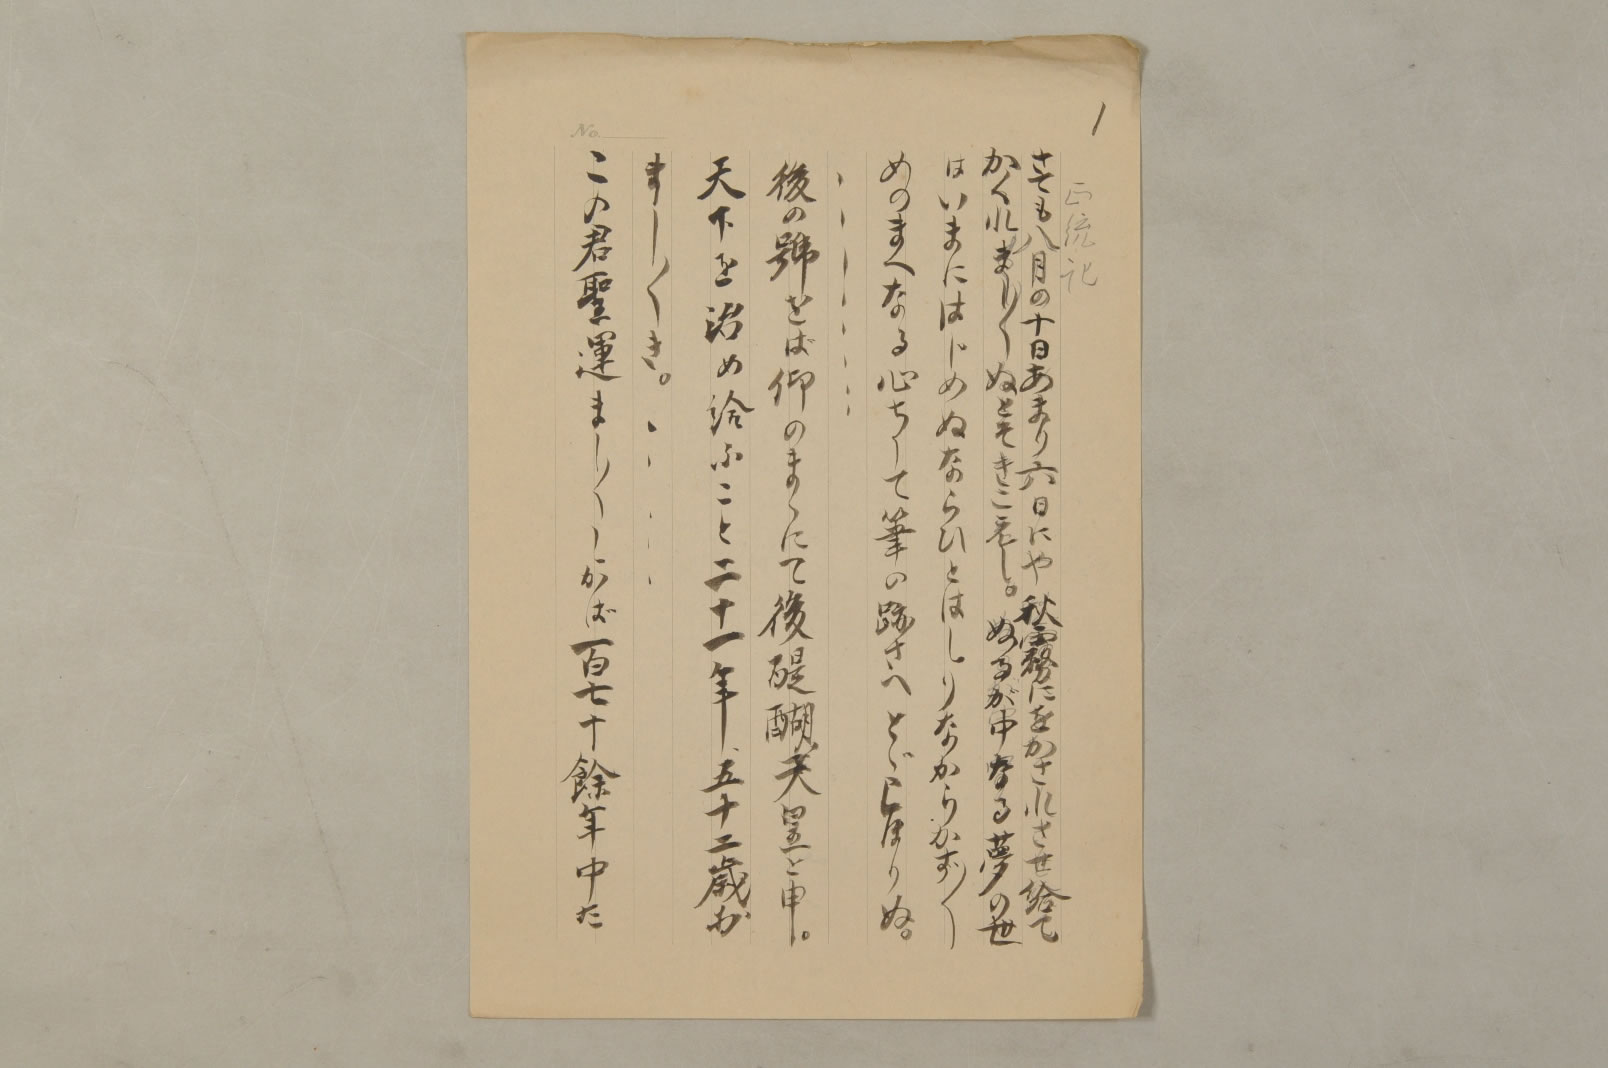 1
正統記
さても八月の十日あまり六日にや秋霧にをかされさせ給て
かくれまし〱ぬときこえし。ぬるが中なる夢の世
はいまにはじめぬならひとはしりなからかず〱
めのまへなる心ちして筆の跡さへとゞこほりぬ。
、、、、、、、
後の號をば仰のまゝにて後醍醐天皇と申。
天下を治め給ふこと二十一年、五十二歳お
まし〱き。、、、、、
この君聖運まし〱しかば一百七十餘年中た
No.